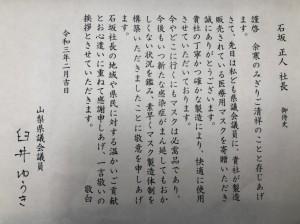 石坂 正人 社長 御侍史
謹啓 余寒のみぎりご清祥のことと存じあげ
ます。先日は私ども県議会議員に、貴社が製造
販売されている医療用マスクを寄贈いただき
誠にありがとうございます。
貴社の丁寧かつ確かな製造により、快適に使用
させていただいております。
今やどこに行くにもマスクは必需品であり、
今後もいつ新たな感染症がまん延してもおか
しくない状況を鑑み、素早くマスク製造体制を
構築いただきましたことに敬意を申しあげ
ます。
石坂社長の地域や県民に対する温かいご貢献
とお心遣いに重ねて感謝申しあげ、一言敬いの
挨拶とさせていただきます。
敬白
令和三年二月吉日
山梨県議会議員
臼井ゆうき